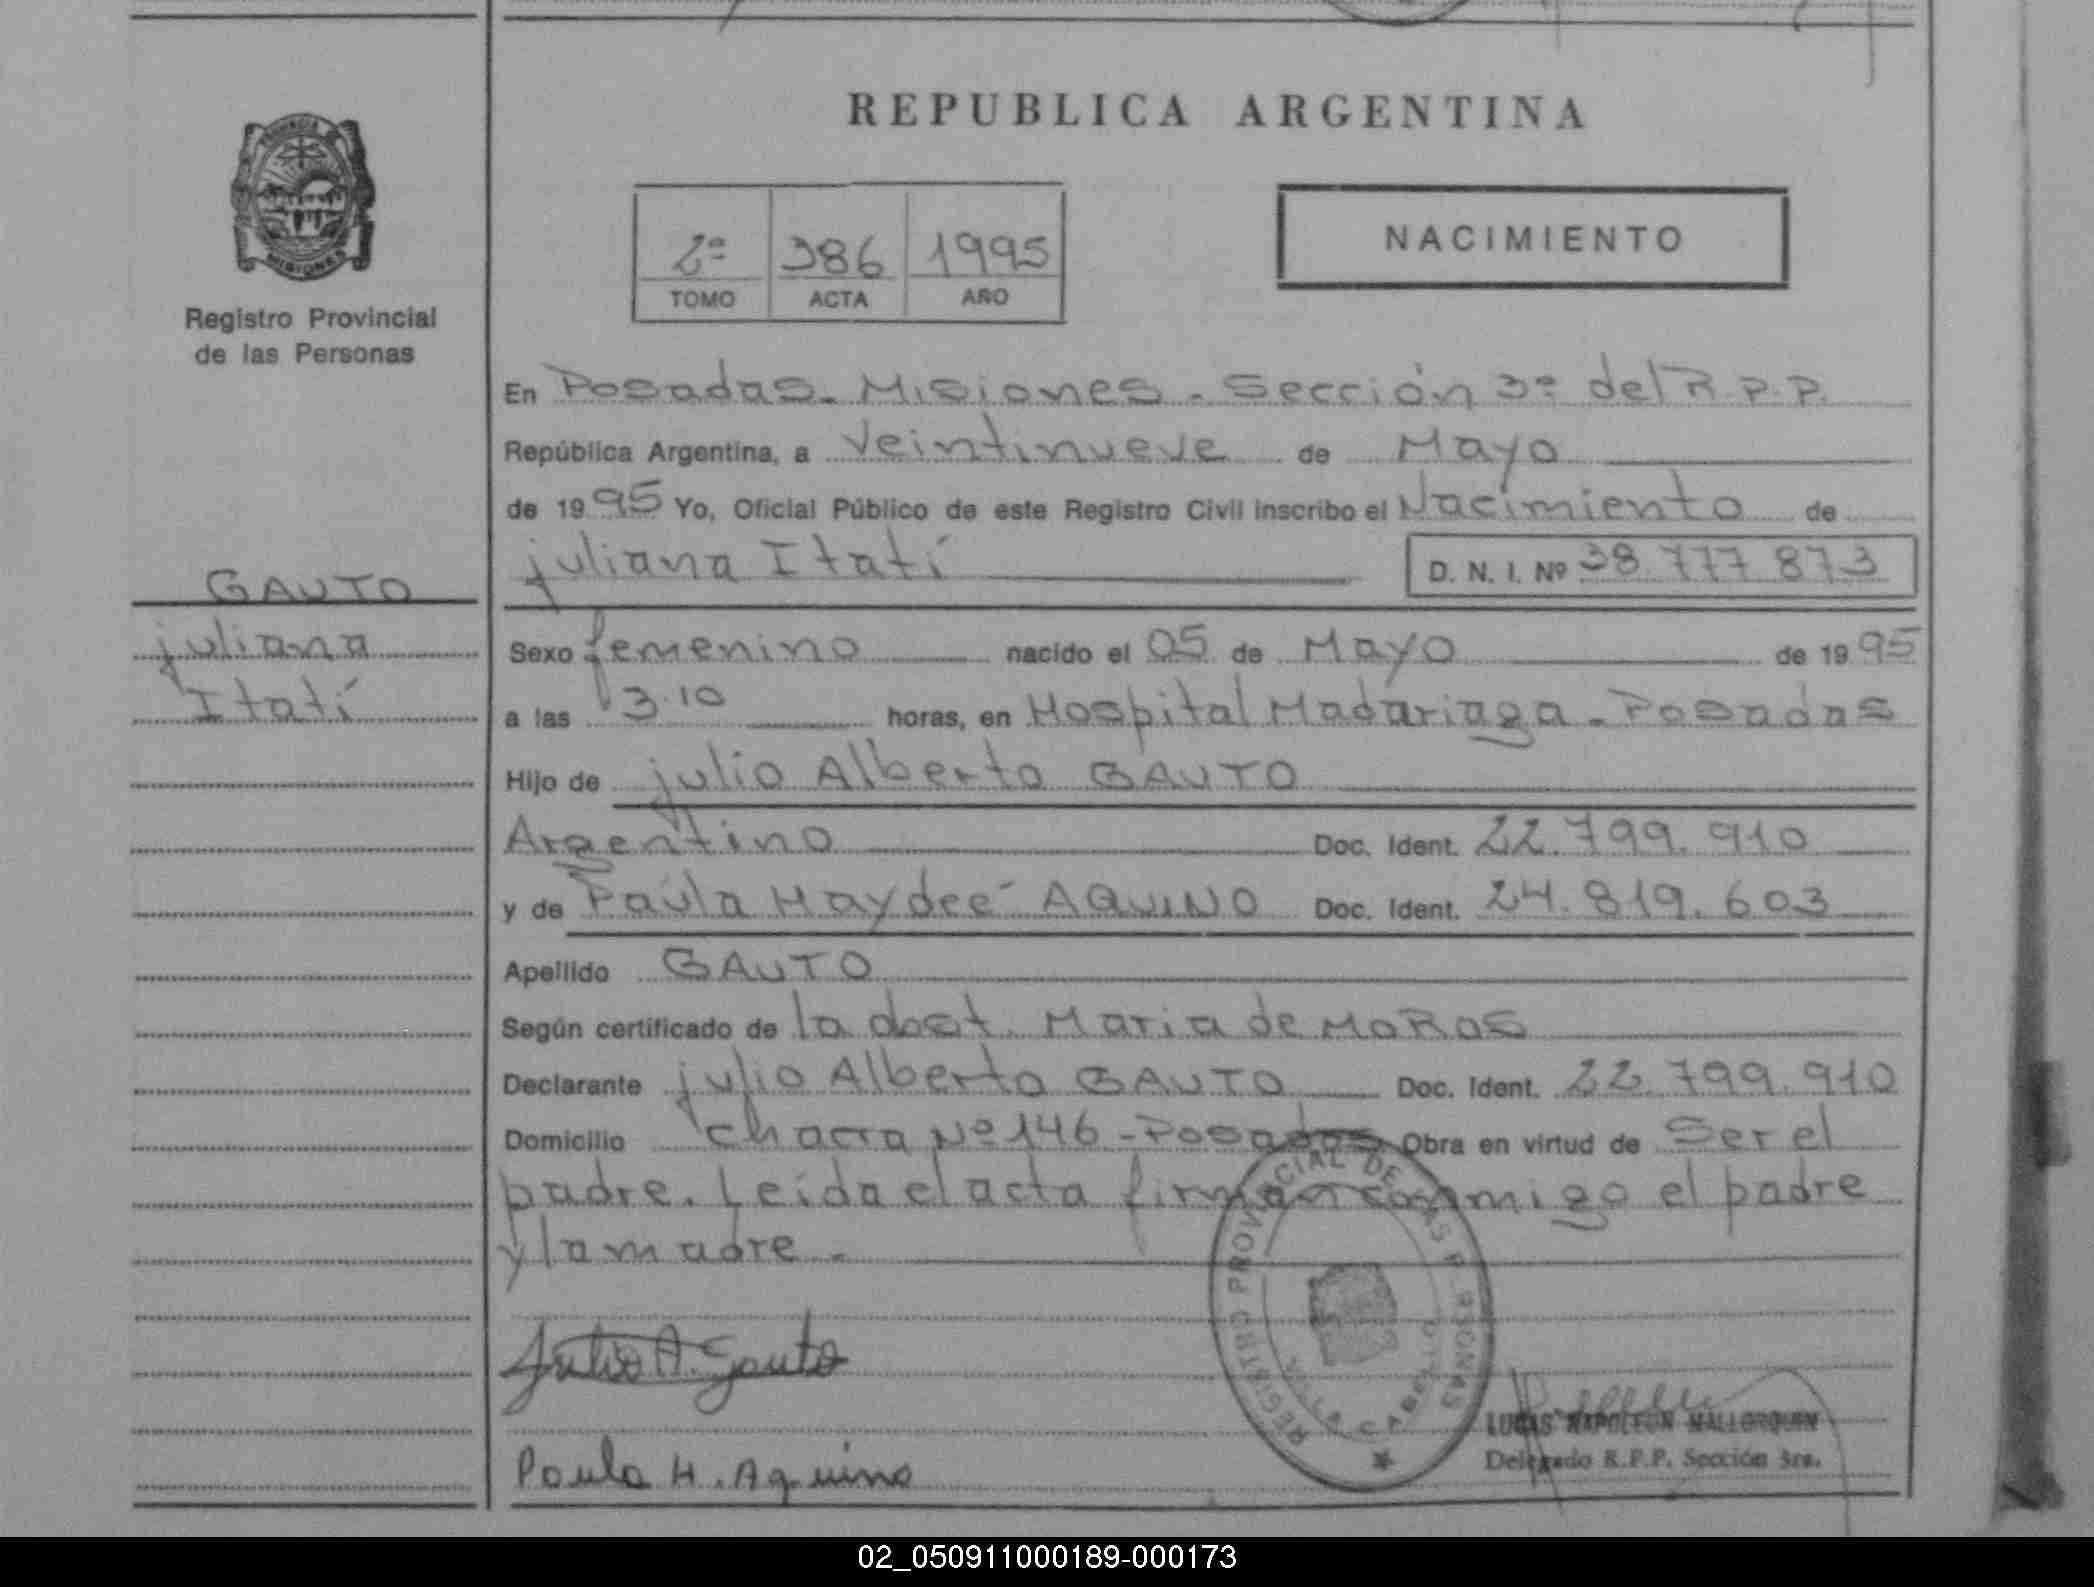 REPUBLICA ARGENTINA
PROVINCIA DE
MISIONES
Registro Provincial
de las Personas
2ª 386 1995
TOMO ACTA AÑO
NACIMIENTO
En Posadas - Misiones - Sección 3ª del R.P.P.
República Argentina, a Veintinueve de Mayo
de 1995 Yo, Oficial Público de este Registro Civil inscribo el Nacimiento de
juliana Itatí D. N. I. Nº 38.777.873
GAUTO
juliana
Itatí
Sexo femenino nacido el 05 de Mayo de 1995
a las 3.10 horas, en Hospital Madariaga - Posadas
Hijo de julio Alberto GAUTO
Argentino Doc. Ident. 22.799.910
y de Paula Haydeé AQUINO Doc. Ident. 24.819.603
Apellido GAUTO
Según certificado de la dost. Maria de MOROS
Declarante julio Alberto GAUTO Doc. Ident. 22.799.910
Domicilio chacra Nº 146 - Posadas Obra en virtud de Ser el
padre. Leída el acta firman conmigo el padre
y la madre.-
Julio A. Gauto
Paula H. Aquino
REGISTRO PROVINCIAL DE LAS PERSONAS
VILLA CABELLO
LUCAS NAPOLEON MALLORQUIN
Delegado R.P.P. Sección 3ra.
02_050911000189-000173